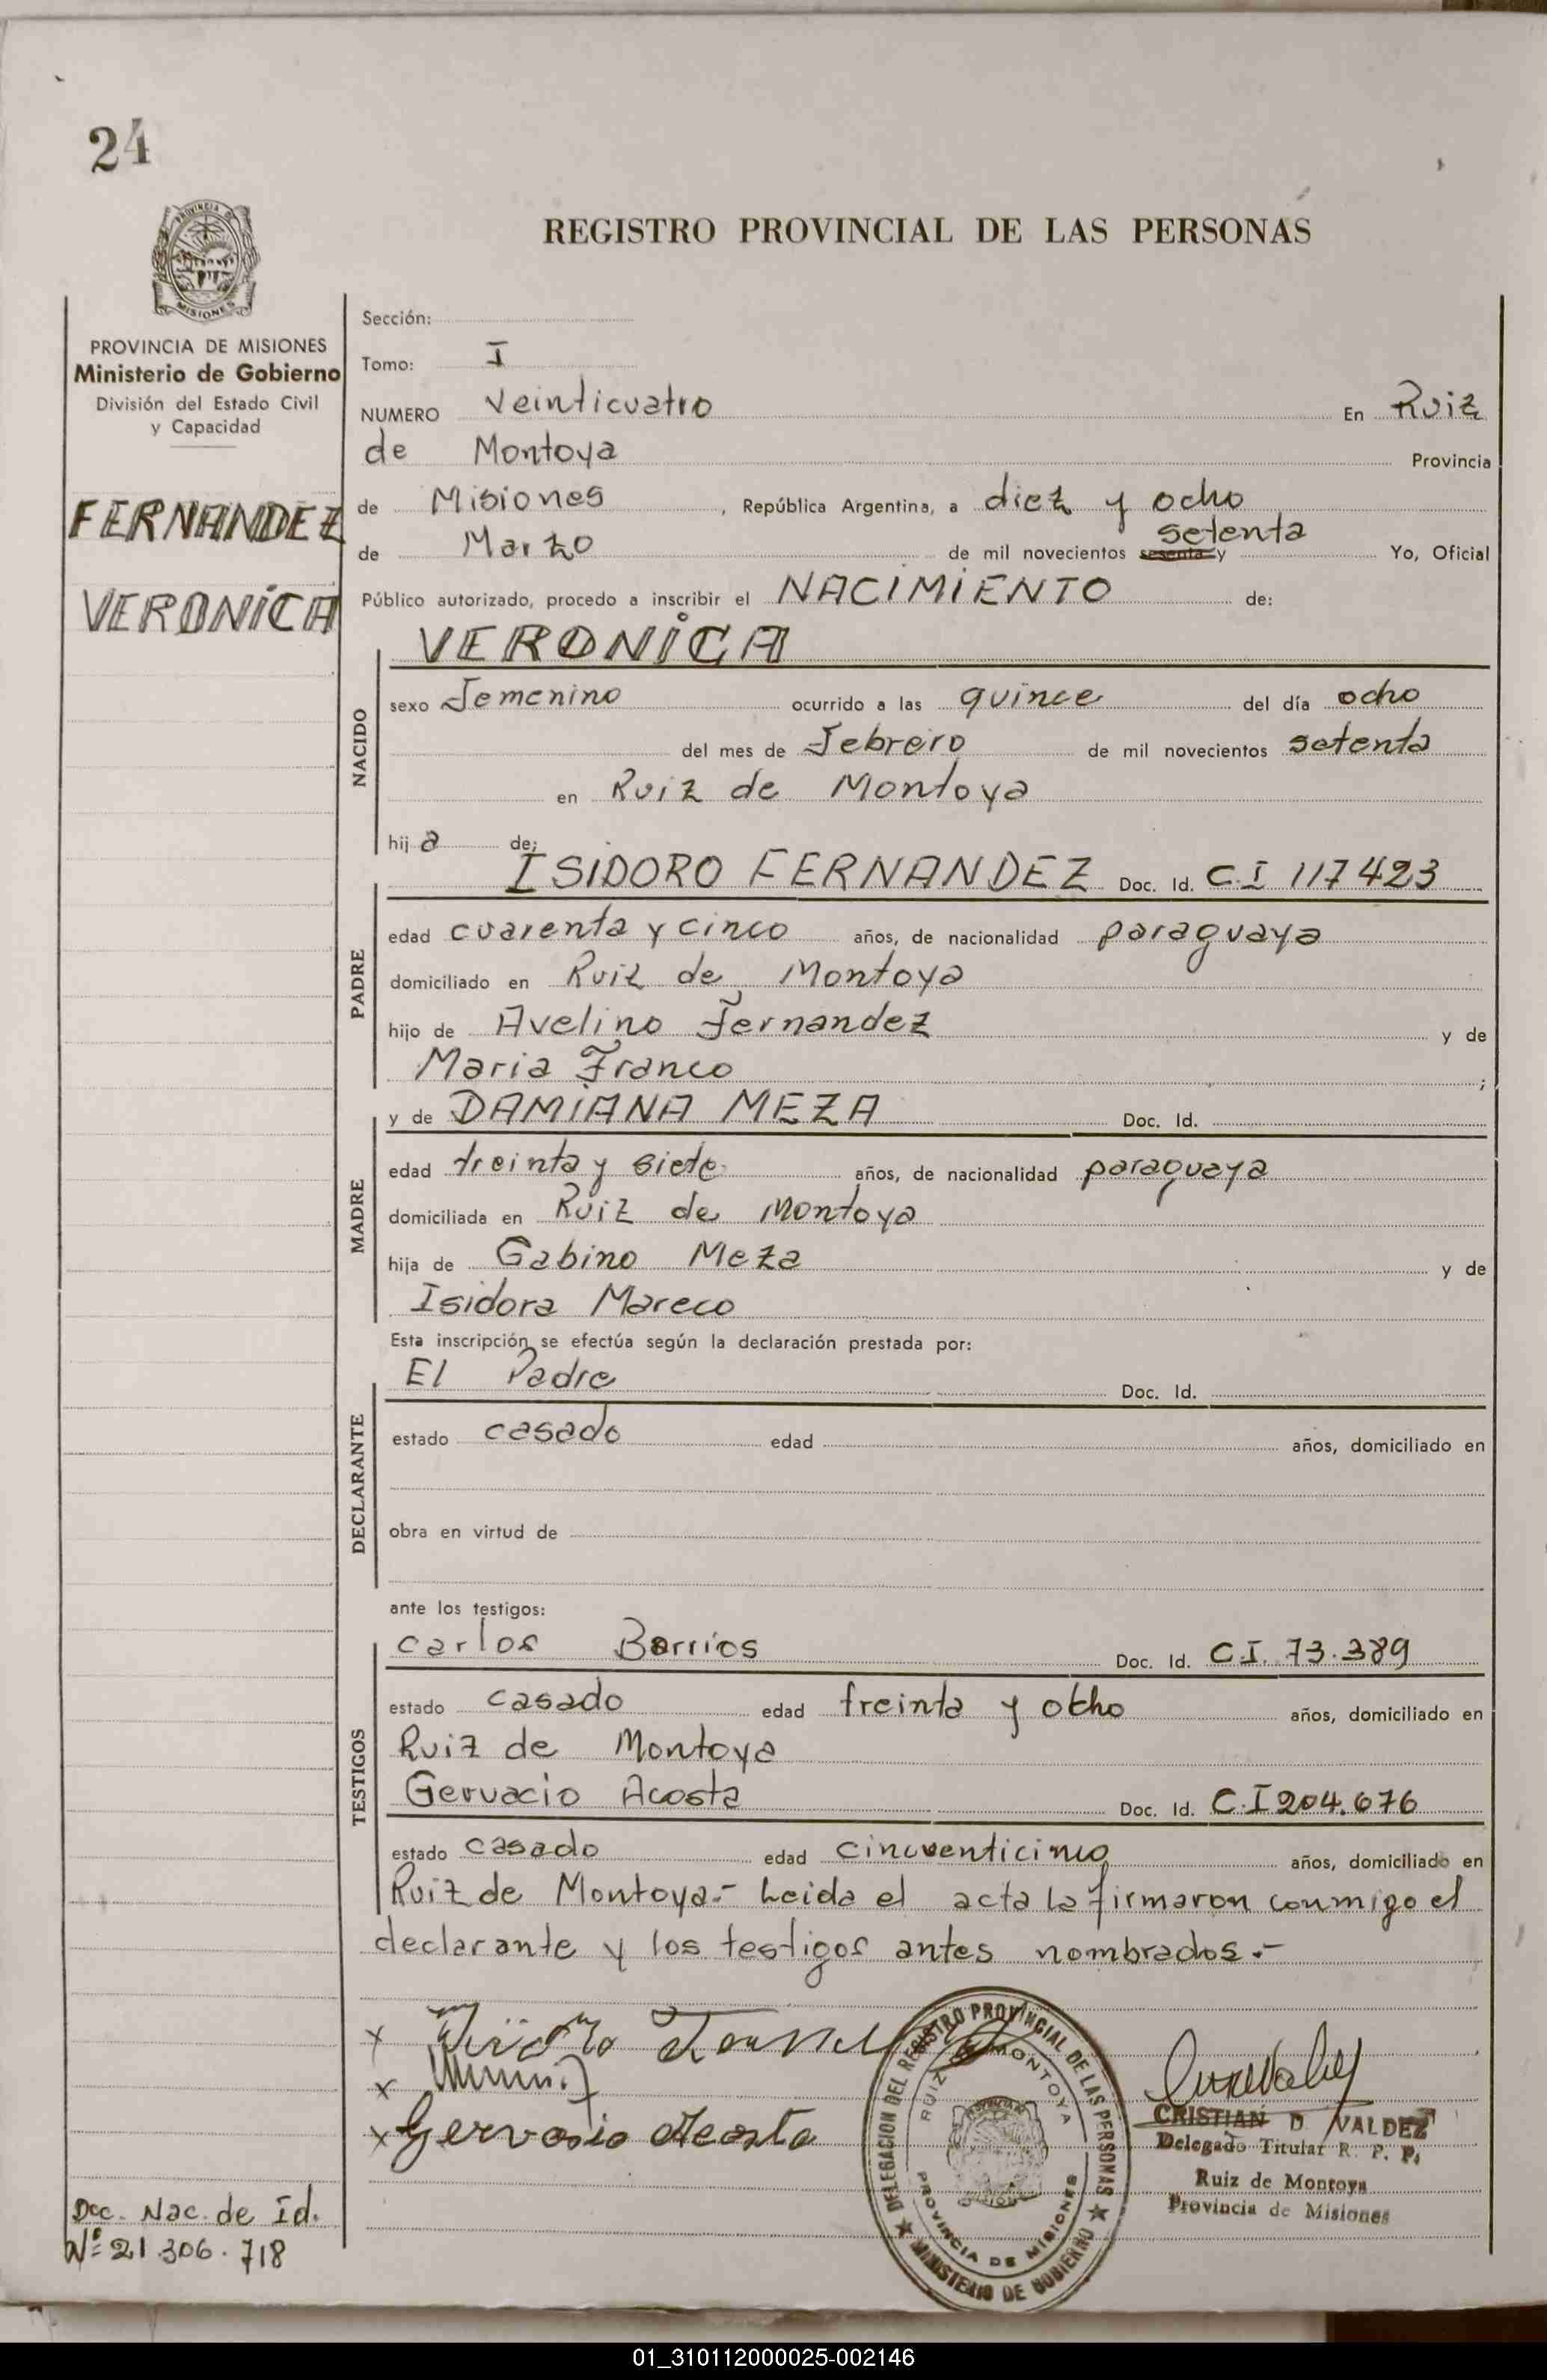 24
REGISTRO PROVINCIAL DE LAS PERSONAS
PROVINCIA DE MISIONES
Ministerio de Gobierno
División del Estado Civil
y Capacidad
FERNANDEZ
VERONICA
Sección:
Tomo: I
NUMERO Veinticuatro En Ruiz
de Montoya Provincia
de Misiones, República Argentina, a diez y ocho
setenta
de Marzo de mil novecientos sesenta y Yo, Oficial
Público autorizado, procedo a inscribir el NACIMIENTO de:
VERONICA
NACIDO
sexo Femenino ocurrido a las quince del día ocho
del mes de Febrero de mil novecientos setenta
en Ruiz de Montoya
hija de:
PADRE
ISIDORO FERNANDEZ Doc. Id. C.I 117423
edad cuarenta y cinco años, de nacionalidad paraguaya
domiciliado en Ruiz de Montoya
hijo de Avelino Fernandez y de
Maria Franco ;
MADRE
y de DAMIANA MEZA Doc. Id.
edad treinta y siete años, de nacionalidad paraguaya
domiciliada en Ruiz de Montoya
hija de Gabino Meza y de
Isidora Mareco
Esta inscripción se efectúa según la declaración prestada por:
DECLARANTE
El Padre Doc. Id.
estado casado edad años, domiciliado en
obra en virtud de
ante los testigos:
TESTIGOS
Carlos Barrios Doc. Id. C.I. 73.389
estado casado edad treinta y ocho años, domiciliado en
Ruiz de Montoya
Gervacio Acosta Doc. Id. C.I 204.676
estado casado edad cincuenticinco años, domiciliado en
Ruiz de Montoya.- Leida el acta la firmaron conmigo el
declarante y los testigos antes nombrados.-
x
x
x Gervasio Acosta
DELEGACION DEL REGISTRO PROVINCIAL DE LAS PERSONAS
MINISTERIO DE GOBIERNO
RUIZ DE MONTOYA
PROVINCIA DE MISIONES
CRISTIAN D. VALDEZ
Delegado Titular R. P. P.
Ruiz de Montoya
Provincia de Misiones
Doc. Nac. de Id.
Nº 21.306.718
01_310112000025-002146